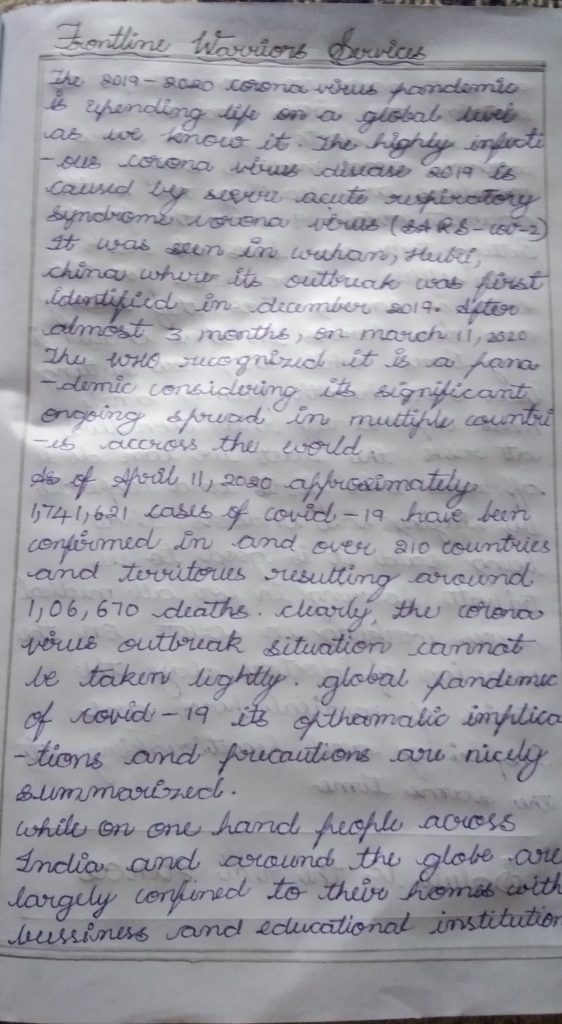 Frontline Warriors Services
The 2019-2020 corona virus pandemic
is upending life on a global level
as we know it. The highly infecti
-ous corona virus disease 2019 is
caused by severe acute respiratory
syndrome corona virus (SARS-cov-2)
It was seen in wuhan, Hubei,
china where its outbreak was first
identified in december 2019. After
almost 3 months, on march 11, 2020
The WHO recognized it is a pana
-demic considering its significant
ongoing spread in multiple countri
-es accross the world
As of April 11, 2020 approximately
1,741,621 cases of covid-19 have been
confirmed in and over 210 countries
and territories resulting around
1,06,670 deaths. clearly, the corona
virus outbreak situation cannot
be taken lightly. global pandemic
of covid-19 its opthamalic implica
-tions and precautions are nicely
summarized.
while on one hand people across
India and around the globe are
largely confined to their homes with
bussiness and educational institution